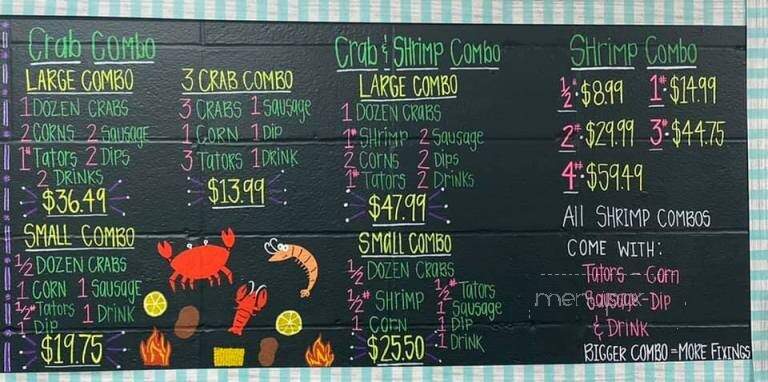 Crab Combo
LARGE COMBO
1 DOZEN CRABS
2 CORNS 2 SAUSAGE
1# Tators 2 Dips
2 DRINKS
$36.49
SMALL COMBO
1/2 DOZEN CRABS
1 CORN 1 SAUSAGE
1/2# Tators 1 DRINK
1 Dip
$19.75
3 CRAB COMBO
3 CRABS 1 SAUSAGE
1 CORN 1 Dip
3 Tators 1 DRINK
$13.99
Crab & Shrimp Combo
LARGE COMBO
1 DOZEN CRABS
1# Shrimp 2 Sausage
2 Corns 2 Dips
1# Tators 2 Drinks
$47.99
Small COMBO
1/2 DOZEN CRABS
1/2# Shrimp 1/2# Tators
1 Sausage
1 Corn 1 Dip
1 Drink
$25.50
Shrimp Combo
1/2#: $8.99 1#: $14.99
2#: $29.99 3#: $44.75
4#: $59.49
All SHRIMP COMBOS
COME WITH:
Tators - Corn
Sausage - Dip
& Drink
BIGGER COMBO = MORE FIXINGS